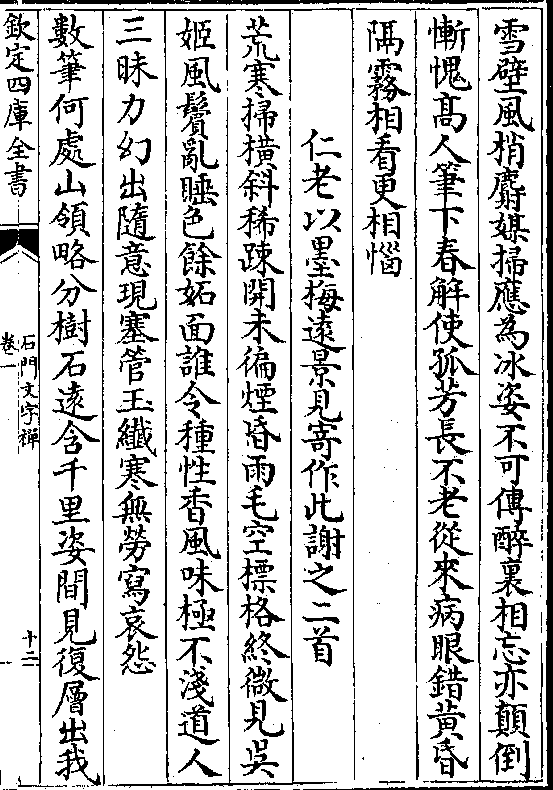 雪壁風梢麝媒掃應為冰姿不可傳醉裏相忘亦顛倒
慚愧髙人筆下春解使孤芳長不老從來病眼錯黃昏
隔霧相看更相惱
仁老以墨梅遠景見寄作此謝之二首
荒寒掃橫斜稀疎開未徧煙昏雨毛空標格終微見吳
姬風鬟亂睡色餘妬面誰令種性香風味極不淺道人
三昧力幻出隨意現塞管玉纖寒無勞寫哀怨
數筆何處山領略分樹石遠含千里姿間見復層出我
欽定四庫全書
石門文字禪
卷一
十二